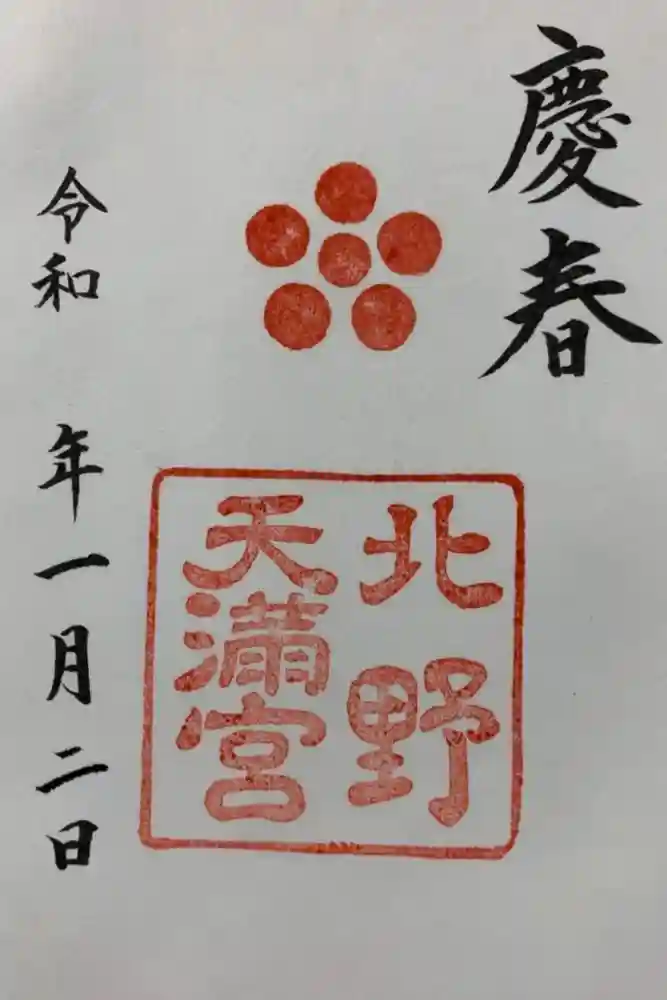 慶春
北野
天満宮
令和 年一月二日